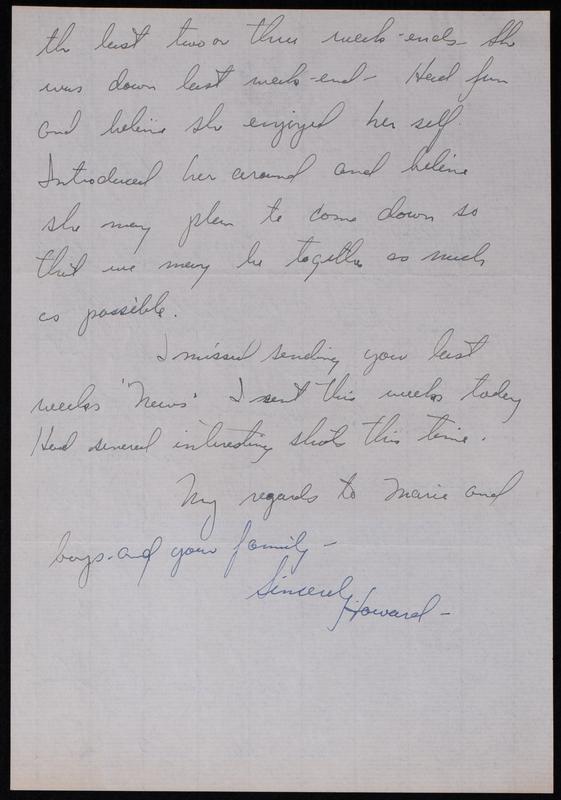 the last two or three week-ends. She
was down last week-end - Had fun
and believe she enjoyed her self.
Introduced her around and believe
she may plan to come down so
that we may be together as much
as possible.
I missed sending you last
weeks 'News'. I sent this weeks today
Had several interesting shots this time.
My regards to Marie and
boys - and your family -
Sincerely
Howard -